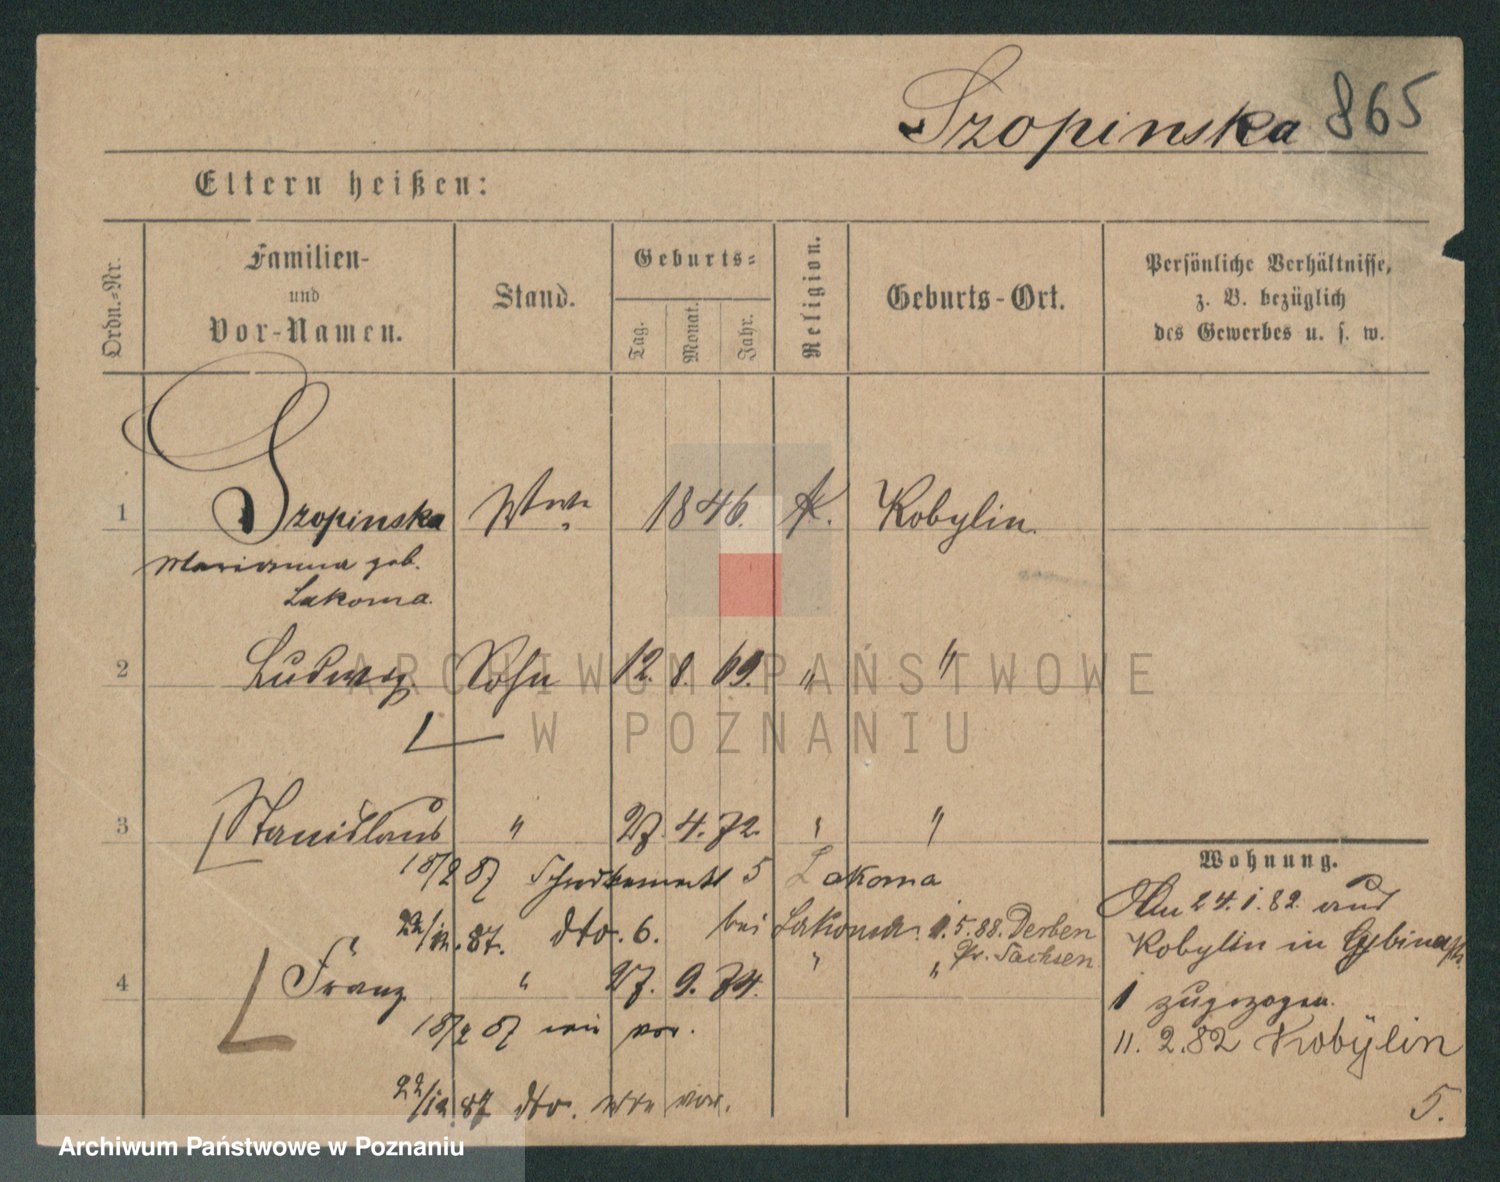 Szopinska 865
Eltern heißen:
Ordn.-Nr.
Familien-
und
Vor-Namen.
Stand.
Geburts-
Tag.
Monat.
Jahr.
Religion.
Geburts-Ort.
Persönliche Verhältnisse,
z. B. bezüglich
des Gewerbes u. s. w.
1 Szopinska Wwe 1846. k. Kobylin.
Marianna geb.
Lakoma.
2 Ludwig Sohn 12. 8. 69. " "
3 Stanislaus " 27. 4. 72. " "
18/2 87 5 Lakoma
22/12. 87. dto. 6. bei Lakoma. 1.5.88. Derben
Pr. Sachsen
4 Franz " 27. 9. 74. " "
18/2 87 wie vor.
22/12. 87 dto. wie vor.
Wohnung.
Am 24.1.82. aus
Kobylin in
1 zugezogen.
11. 2. 82 Kobÿlin
5.
ARCHIWUM PAŃSTWOWE
W POZNANIU
Archiwum Państwowe w Poznaniu